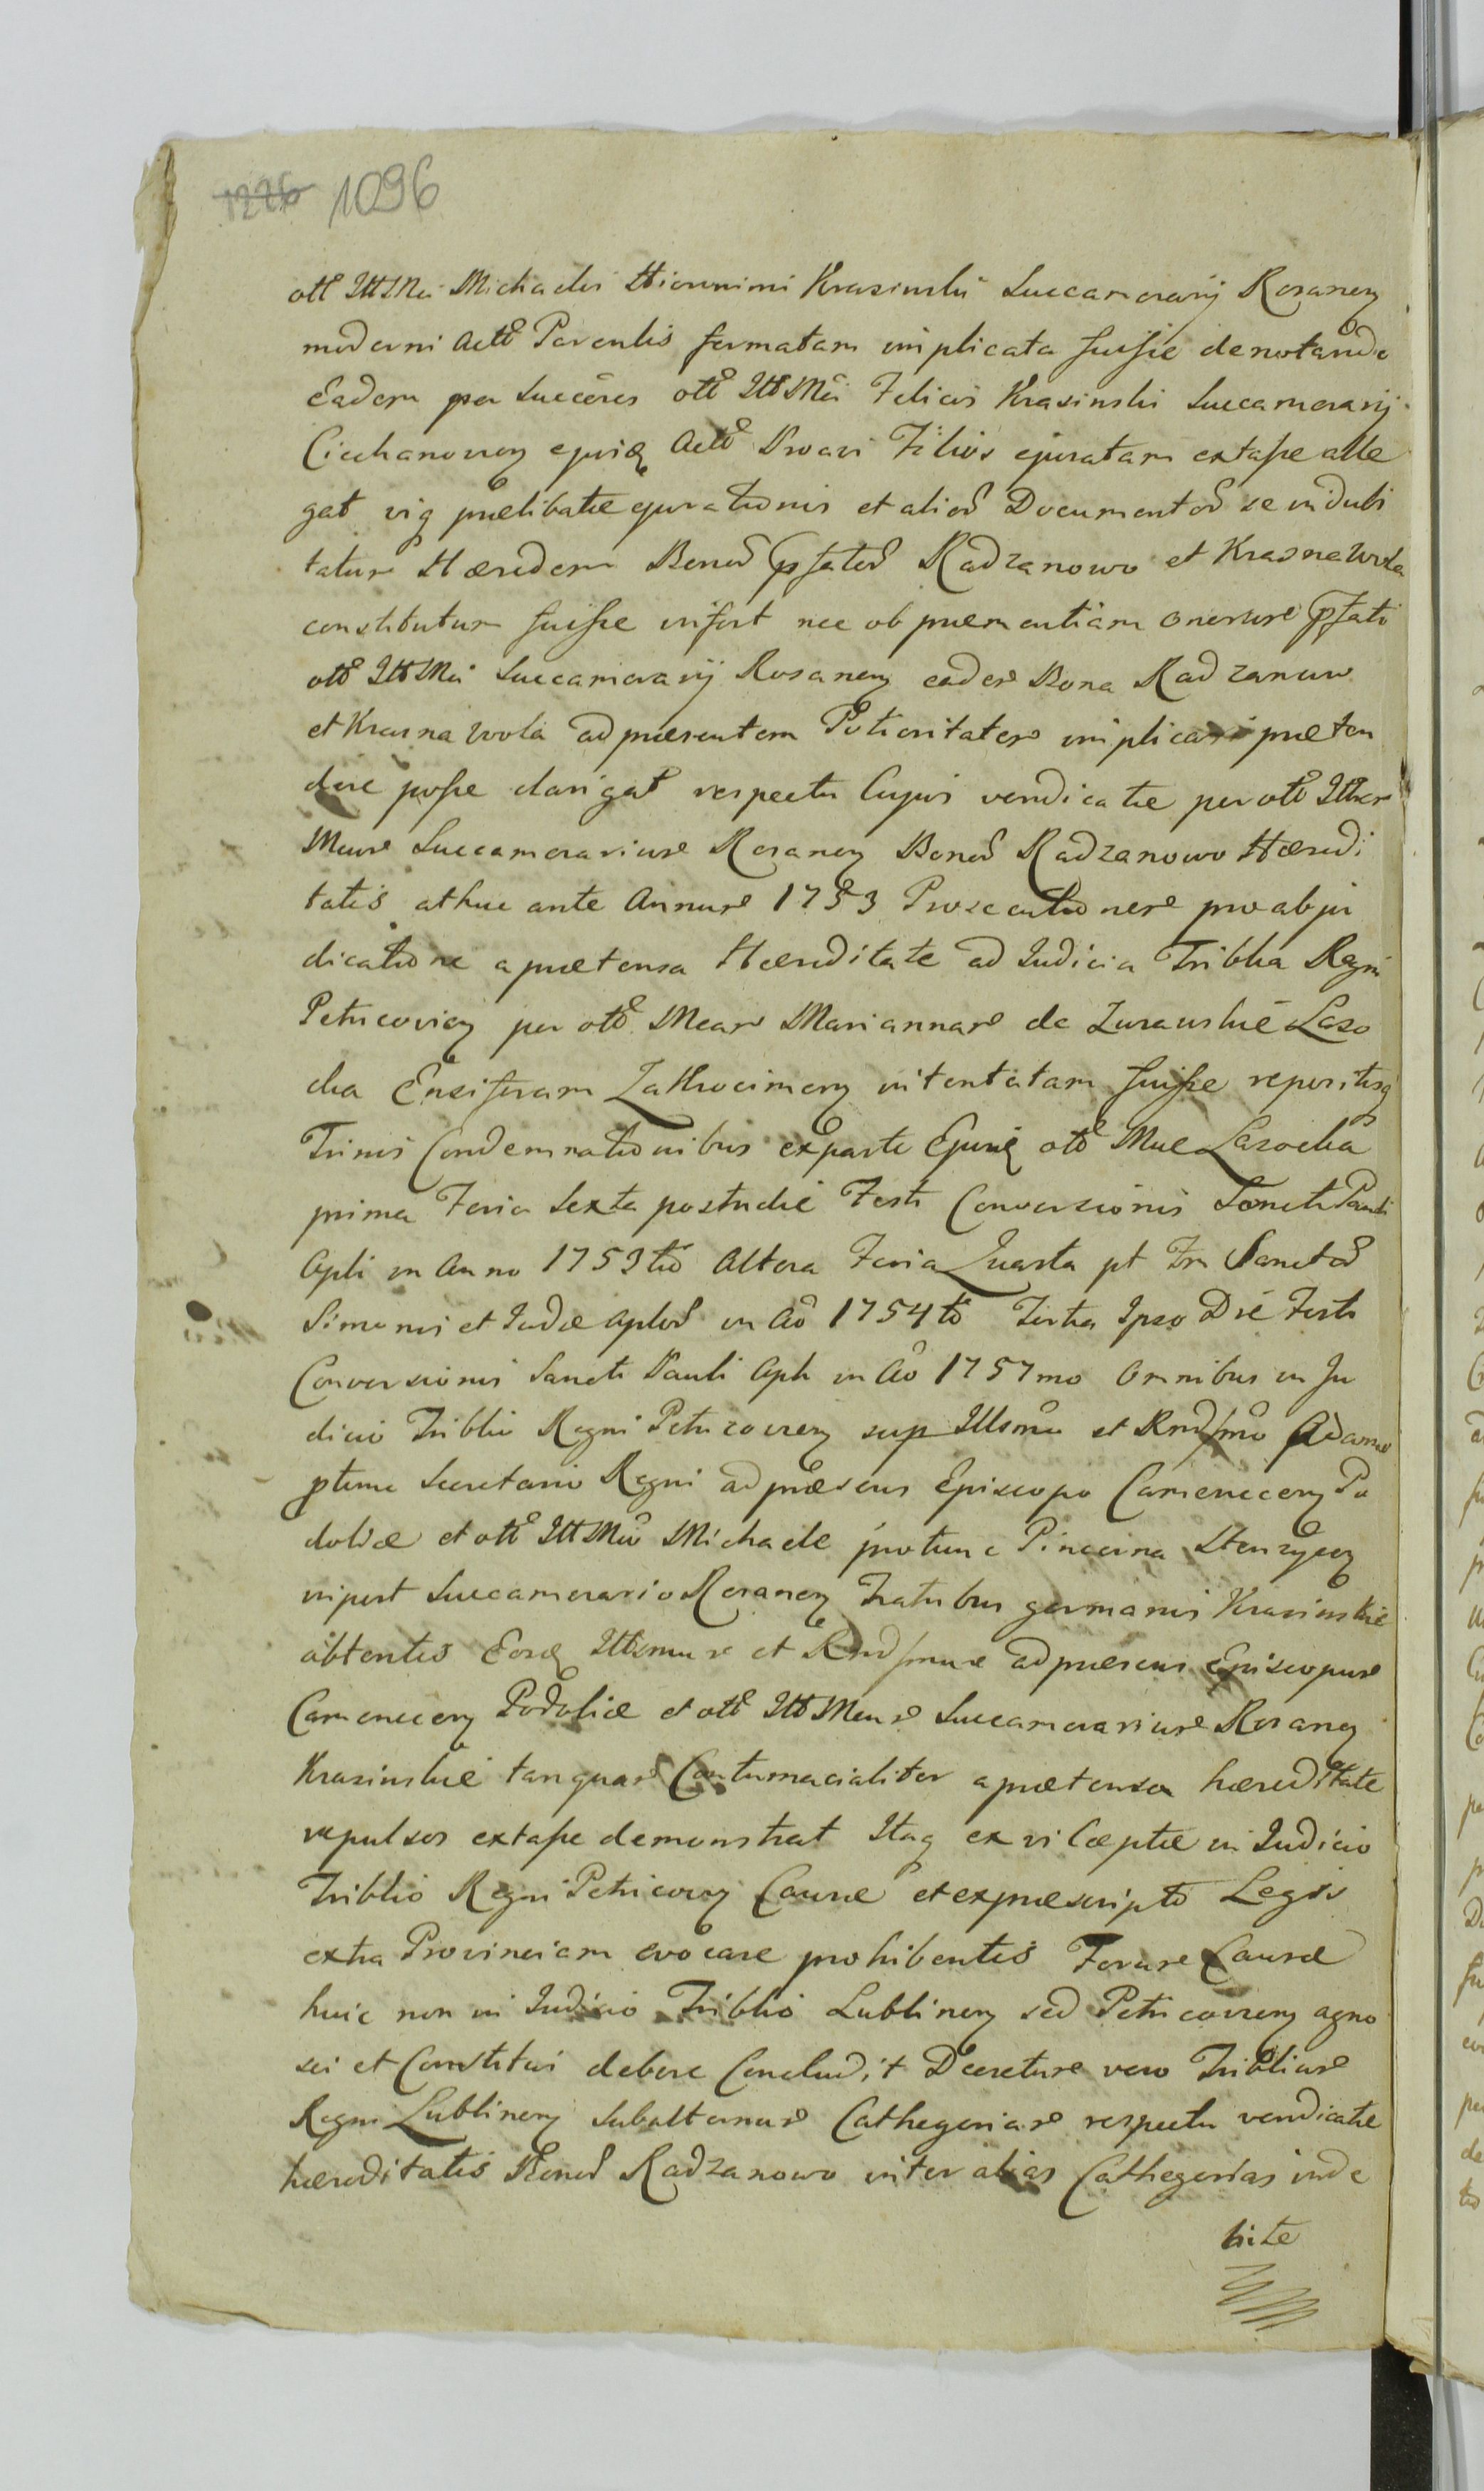 1226 1096
olt Illt Mci Michaelis Hieronimi Krasinski Succamerarij Rosanen
moderni Actt Parentis formatam implicata fuisse denotando
Eadem per Succres olt Illt Mci Felicis Krasinski Succamerarij
Ciechanovien ejusq Actt Proavi Filios ejuratam extasse alle
gat vig prælibatæ ejurationis et alior Documentor se indubi
tatum Hæredem Bonor pfator Radzanowo et Krasna Wola
constitutum fuisse infert nec ob præmentiam onorum pfati
olt Illt Mci Succamerarij Rosanen eadem Bona Radzanow
et Krasna Wola ad præsentem Potioritatem implicari præten
dere posse clarigat respectu Cujus vendicatæ per olt Illtrem
Mcum Succamerarium Rosanen Bonor Radzanowo Hæredi
tatis adhuc ante Annum 1753 Prosecutionem pro abju
dicatione a prætensa Hæreditate ad Judicia Triblia Regni
Petricovien per olt Mcam Mariannam de Zurawskie Laso
cka Ensiferam Zakrocimen intentatam fuisse repositisq
Trinis Condemnationibus ex parte Ejusd olt Mcæ Lasocka
prima Feria Sexta postridie Festi Conversionis Sancti Pauli
Apli in Anno 1753tio Altera Feria Quarta pt Fm Sanctor
Simonis et Judæ Aplor in Ao 1754to Tertia Ipso Die Festi
Conversionis Sancti Pauli Apli in Ao 1757mo Omnibus in Ju
dicio Triblio Regni Petricovien sup Illsmo et Rndssmo Adamo
ptunc Secretario Regni ad præsens Episcopo Camenecen Po
doliæ et olt Illt Mco Michaele protunc Pincerna Stenzycen
inpost Succamerario Rosanen Fratribus germanis Krasinskie
obtentis Eosd Illsmum et Rndssmum ad præsens Episcopum
Camenecen Podoliæ et olt Illt Mcum Succamerarium Rosanen
Krasinskie tanquam Contumacialiter a prætensa hæreditate
repulsos extasse demonstrat Itaq ex vi Cæptæ in Judicio
Triblio Regni Petricovien Causæ et ex præscripto Legis
extra Provinciam evocare prohibentis Forum Causæ
huic non in Judicio Triblio Lublinen sed Petricovien agno
sci et Constitui debere Concludit Decretum vero Triblium
Regni Lublinen Subalternum Cathegoriam respectu vendicatæ
hæreditatis Bonor Radzanowo inter alias Cathegorias inde
bite